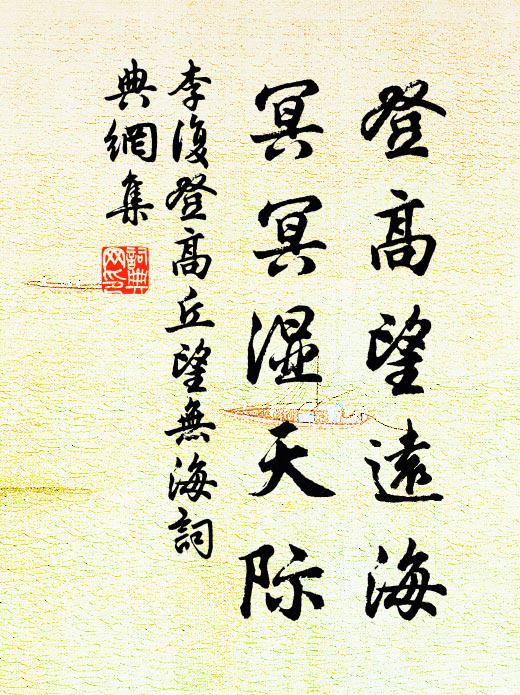 登高望遠海
冥冥湿天际
李復登高丘望無海詞
典網集
詞典
网印